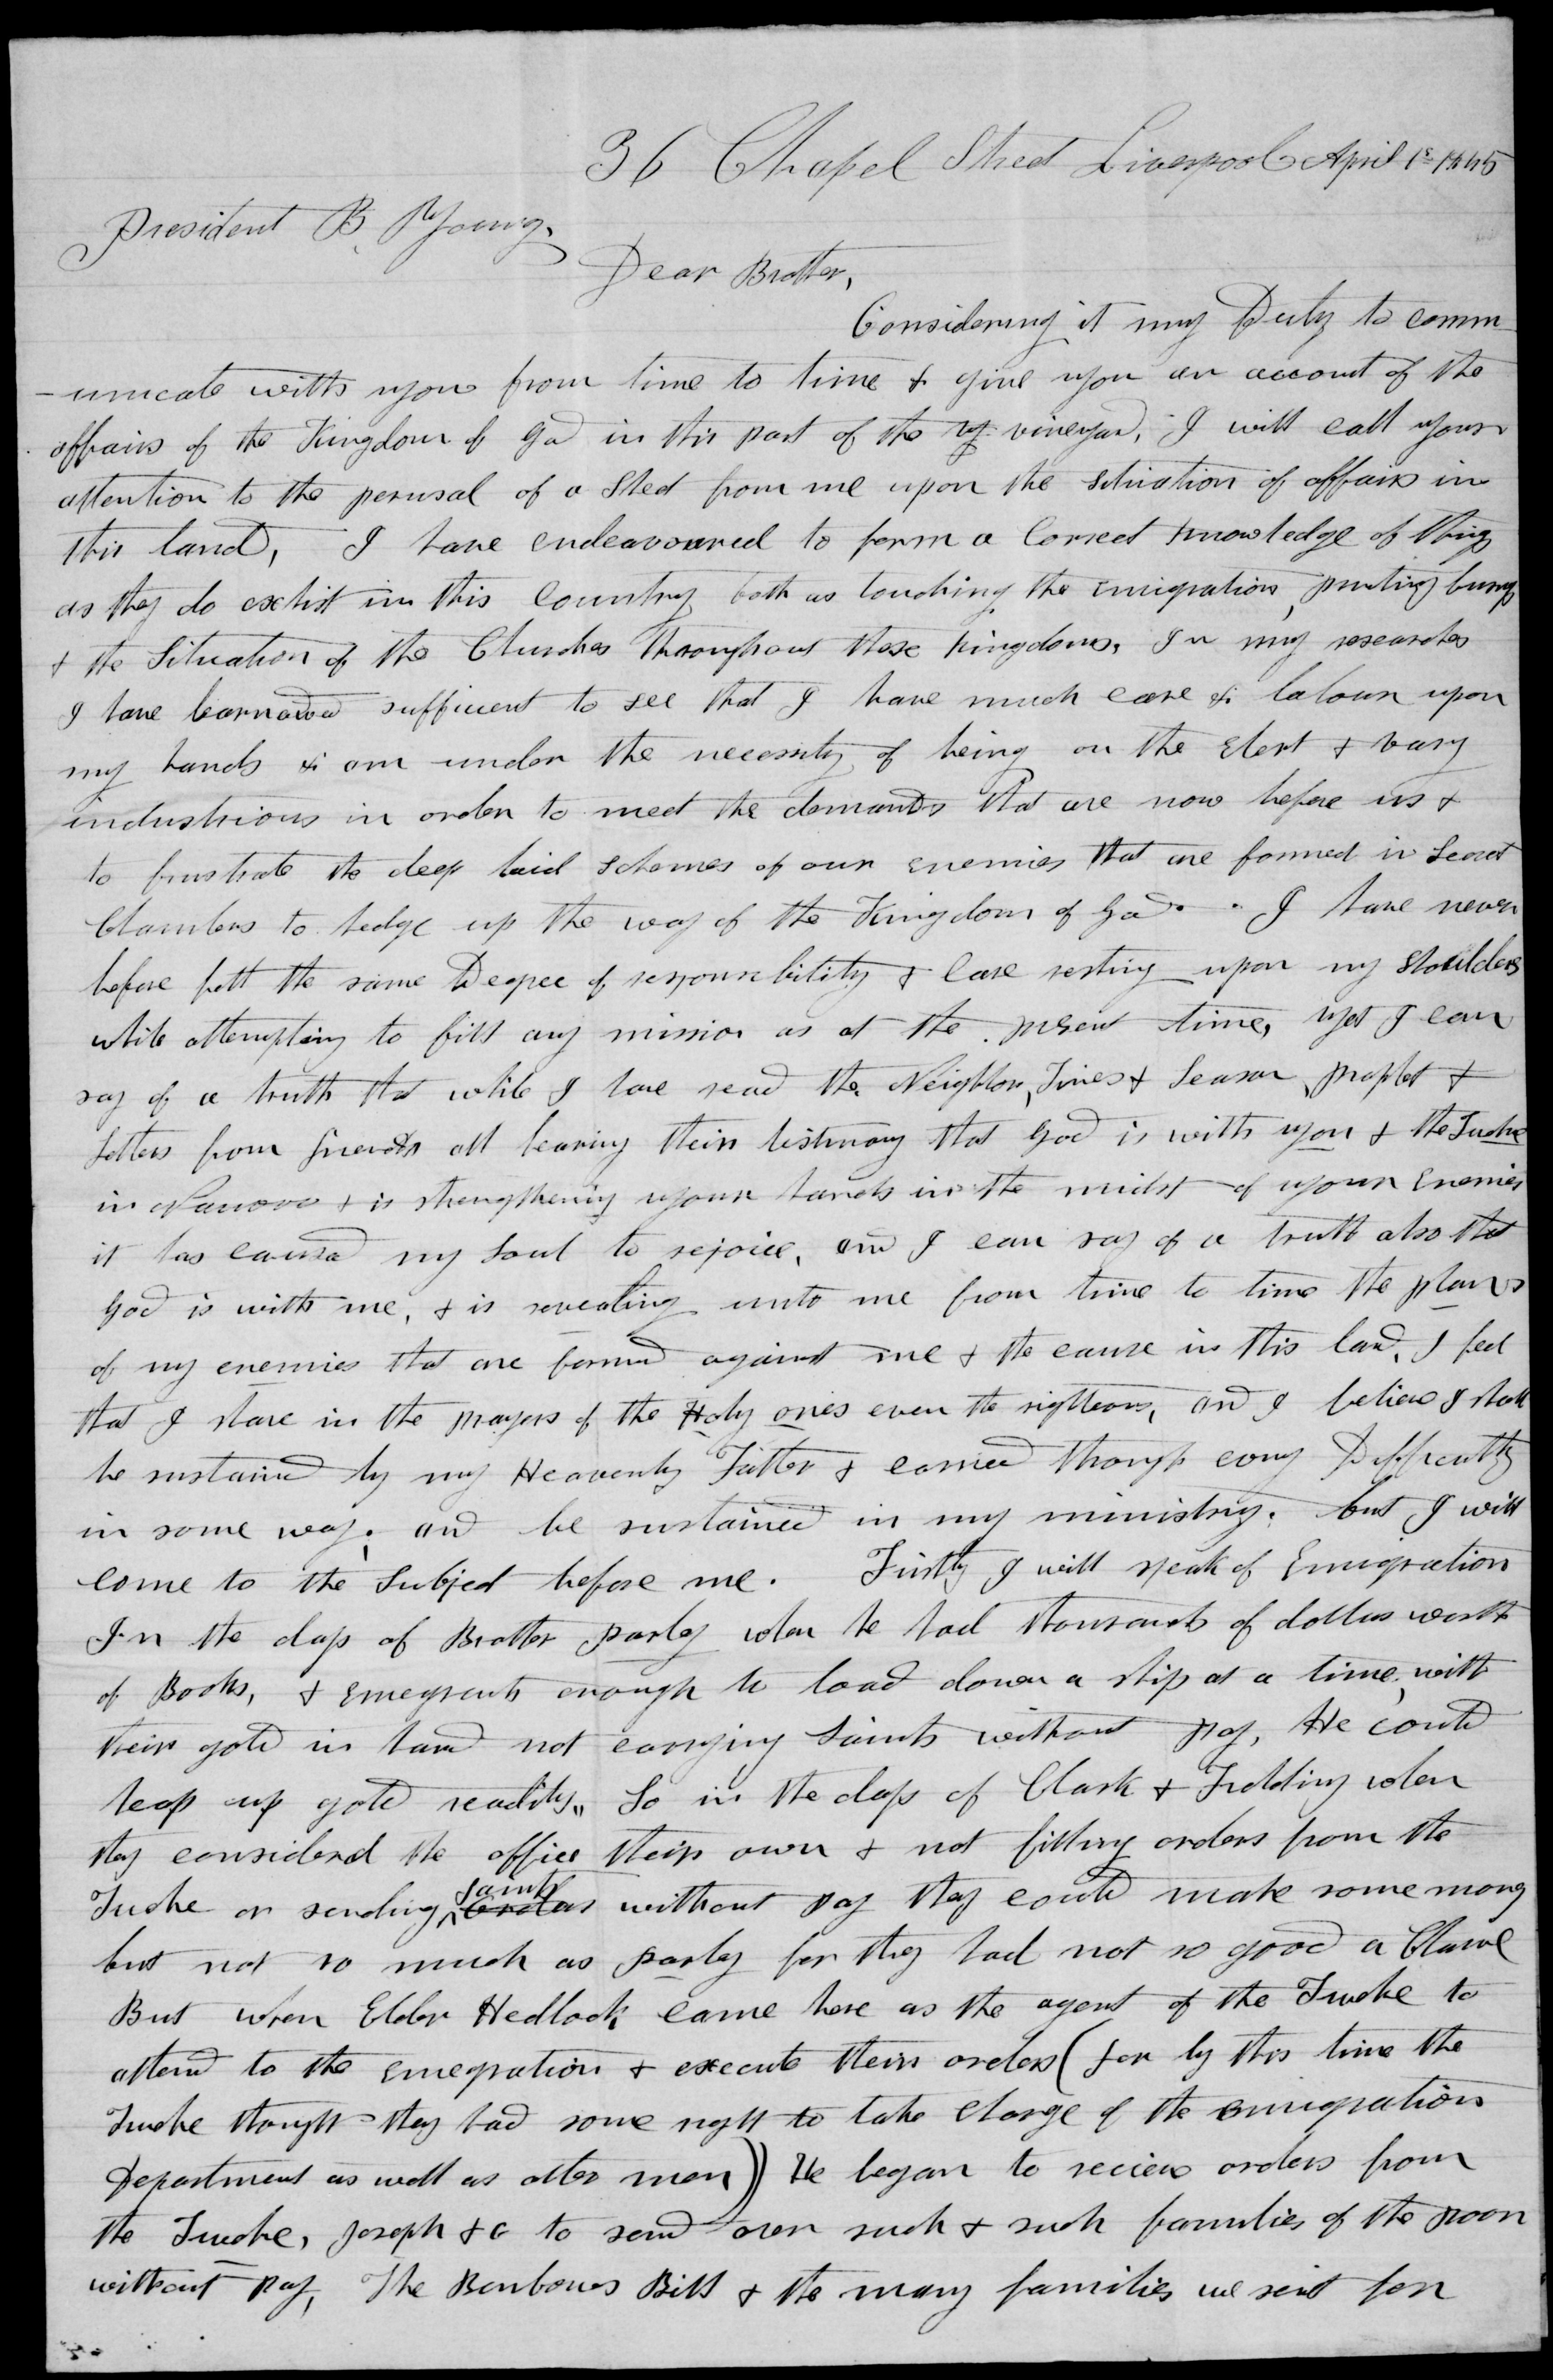 36 Chapel Street Liverpool April 1st 1845
President B. Young,
Dear Brother,
Considering it my Duty to comm
-unicate with you from time to time & give you an account of the
affairs of the Kingdom of God in this part of the vineyard, I will call your
attention to the perusal of a Sheet from me upon the situation of affairs in
this land, I have endeavoured to form a Correct knowledge of things
as they do exhist in this Country both as touching the emigration, printing
& the Situation of the Churches throughout these kingdoms, In my researches
I have learned sufficient to see that I have much care & labour upon
my hands & am under the necessity of being on the elert & vary
industrious in order to meet the demands that are now before us &
to frustrate the deep laid schemes of our enemies that are formed in Secret
Chambers to hedge up the way of the Kingdom of God. I have never
before felt the same Degree of responsibility & Care resting upon my shoulders
while attempting to fill any mission as at the present time, yet I can
say of a truth that while I have read the Neighbor, Times & Season, prophet &
letters from friends all bearing their testimony that God is with you & the Twelve
in Nauvoo & is strengthening your hands in the midst of your Enemies
it has caused my Soul to rejoice, and I can say of a truth also that
God is with me, & is revealing unto me from time to time the plans
of my enemies that are formed against me & the cause in this land, I feel
that I share in the prayers of the Holy ones even the righteous, and I believe I shall
be sustained by my Heavenly Father & carried through evry Difficulty
in some way. and be sustained in my ministry. but I will
come to the Subject before me. Firstly I will speak of Emigration
In the days of Brother parley when he had thousands of dollars worth
of Books, & emegrants enough to load down a ship at a time, with
their gold in hand not carrying Saints without pay, He could
heap up gold readily, So in the days of Clark & Fielding when
they considered the office their own & not filling orders from the
Twelve or sending Saints without pay they could make some money
but not so much as parley for they had not so good a Chance
But when Elder Hedlock came here as the agent of the Twelve to
attend to the emegration & execute their orders (for by this time the
Twelve thought they had some right to take charge of the emigration
Department as well as other men) He began to recieve orders from
the Twelve, Joseph &c to send over such & such families of the poor
without pay, The Benbows Bill & the many families we sent for